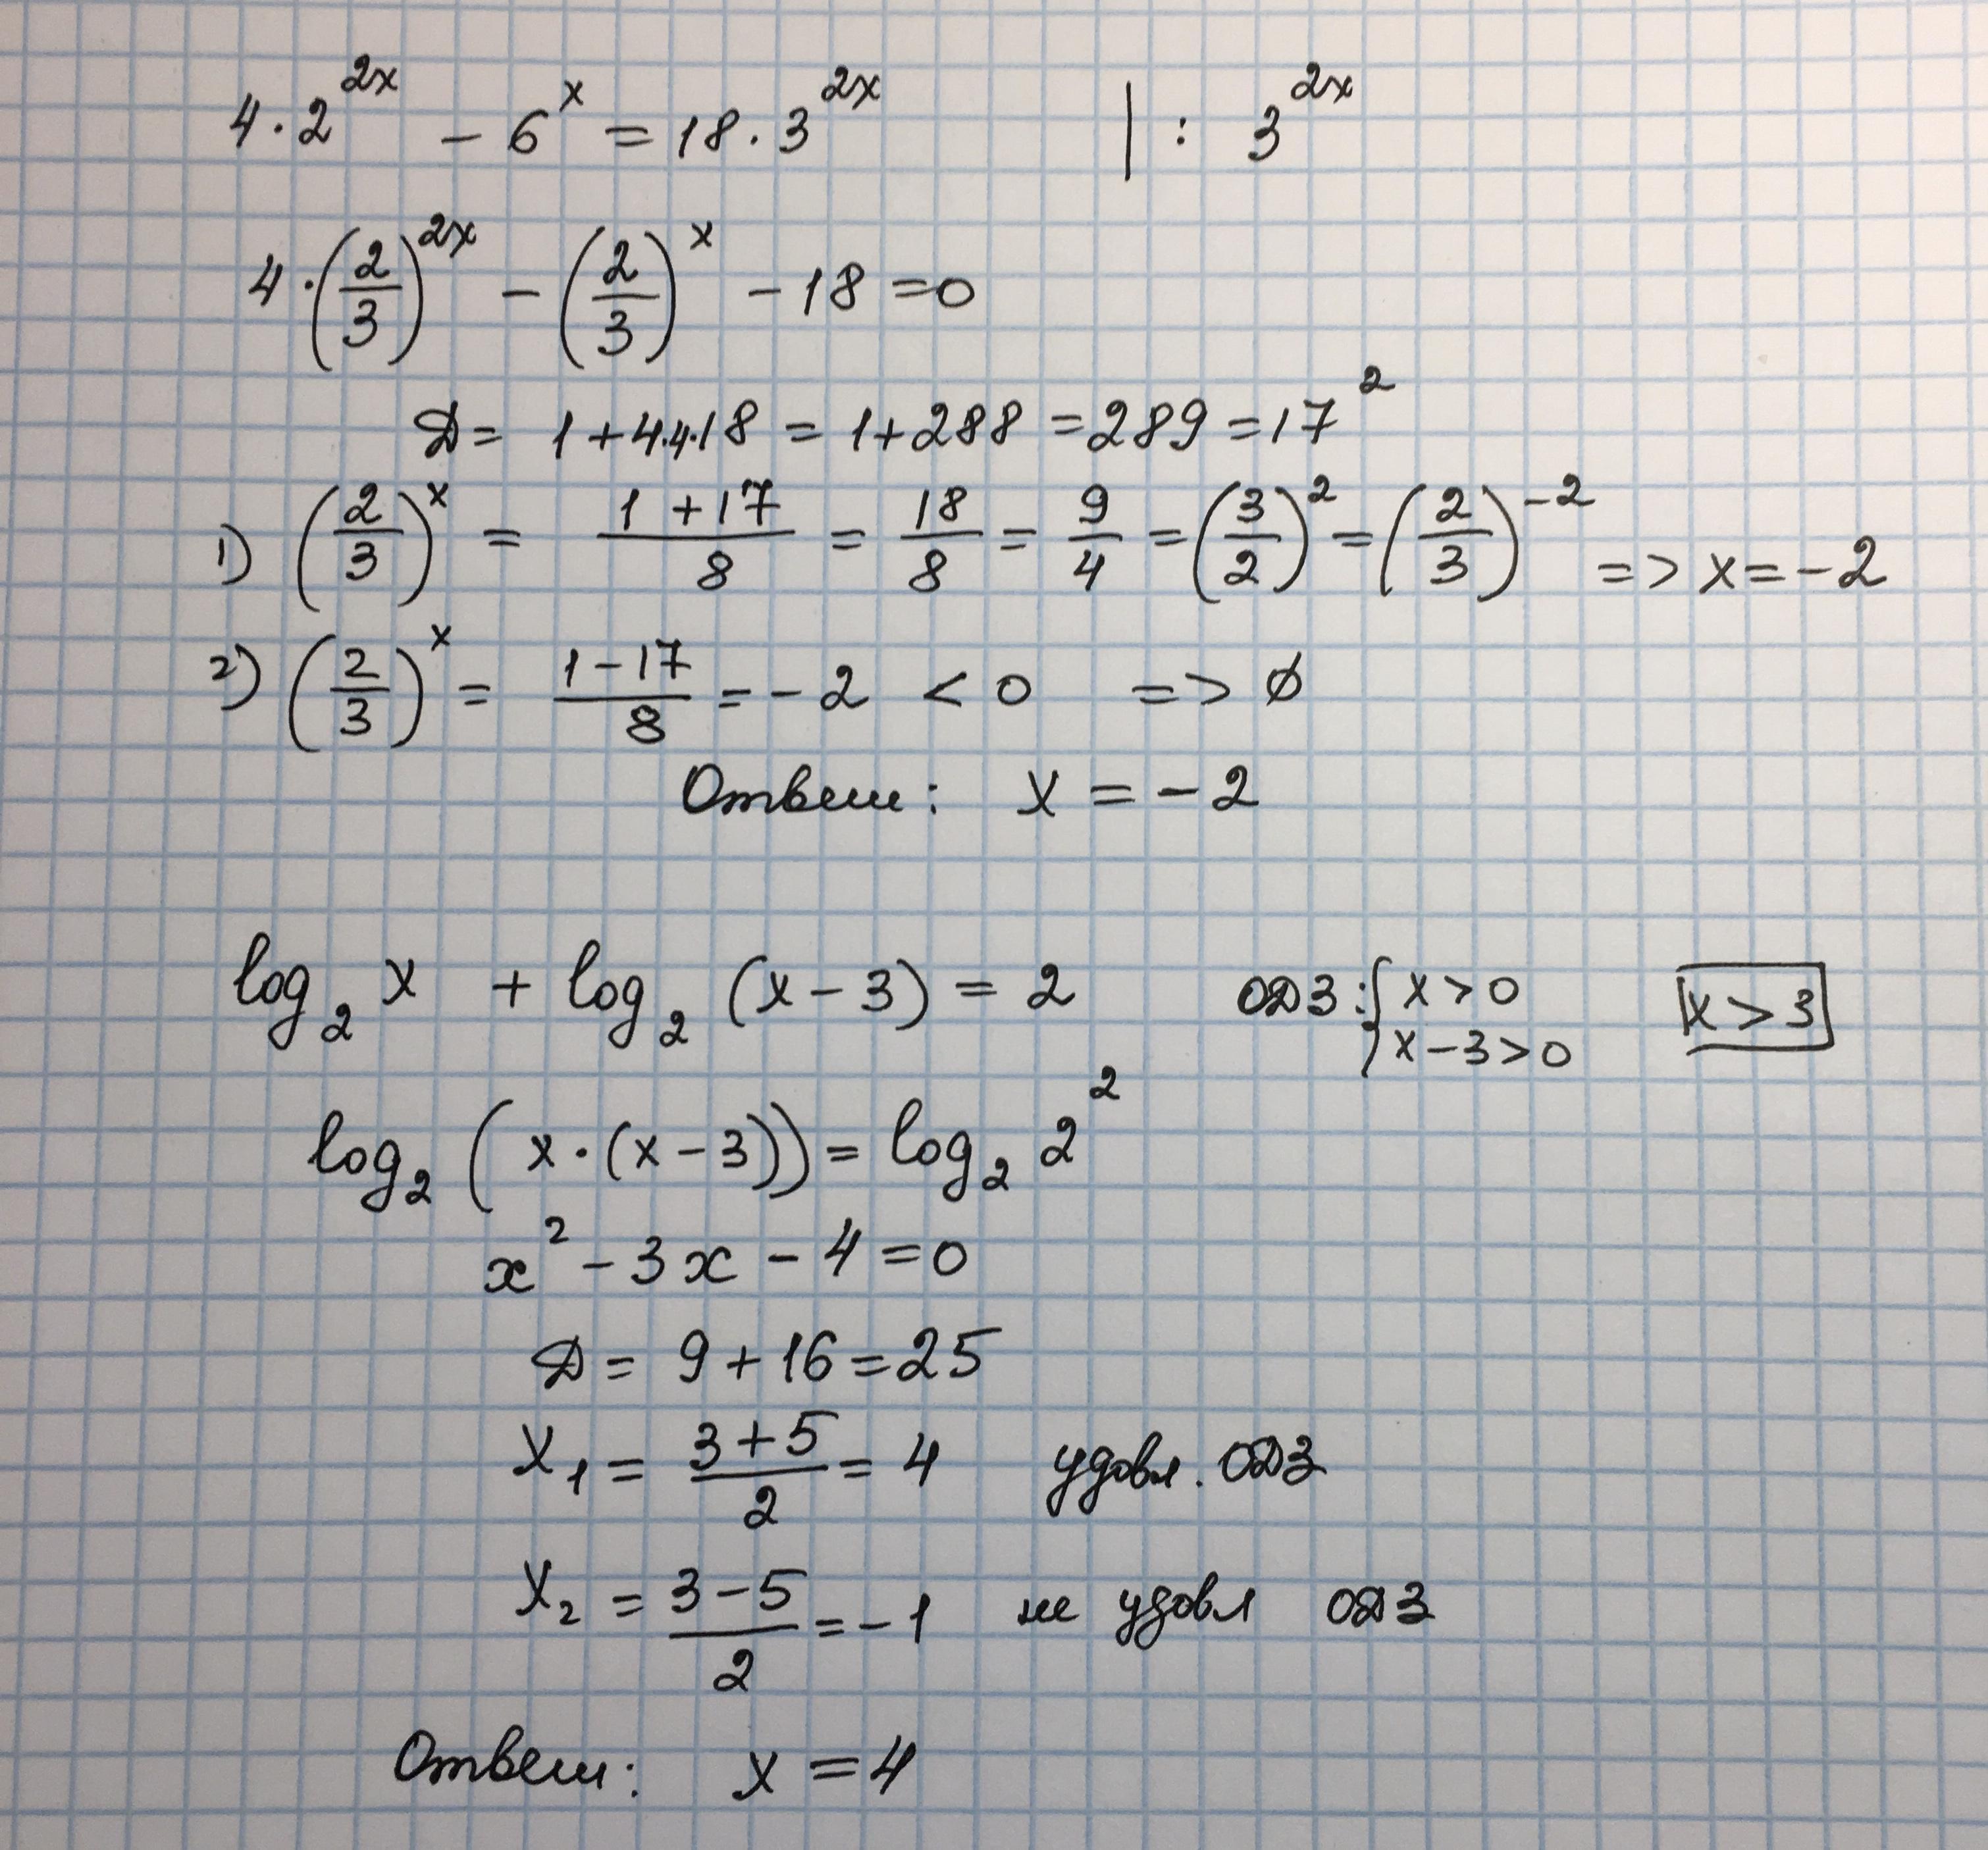 4 · 2^{2x} − 6^x = 18 · 3^{2x} | : 3^{2x}
4 · (2/3)^{2x} − (2/3)^x − 18 = 0
Д = 1 + 4·4·18 = 1 + 288 = 289 = 17²
1) (2/3)^x = (1 + 17)/8 = 18/8 = 9/4 = (3/2)² = (2/3)^{−2} => x = −2
2) (2/3)^x = (1 − 17)/8 = −2 < 0 => ∅
Ответ: x = −2
log₂ x + log₂ (x − 3) = 2 ОДЗ: { x > 0 x > 3
x − 3 > 0
log₂ (x · (x − 3)) = log₂ 2²
x² − 3x − 4 = 0
Д = 9 + 16 = 25
x₁ = (3 + 5)/2 = 4 удовл. ОДЗ
x₂ = (3 − 5)/2 = −1 не удовл ОДЗ
Ответ: x = 4